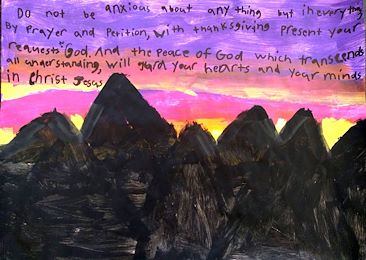 Do not be anxious about anything but in everything
By Prayer and Petition, with thanksgiving present your
requests to God. And the peace of God which transcends
all understanding, will guard your hearts and your minds
in Christ Jesus